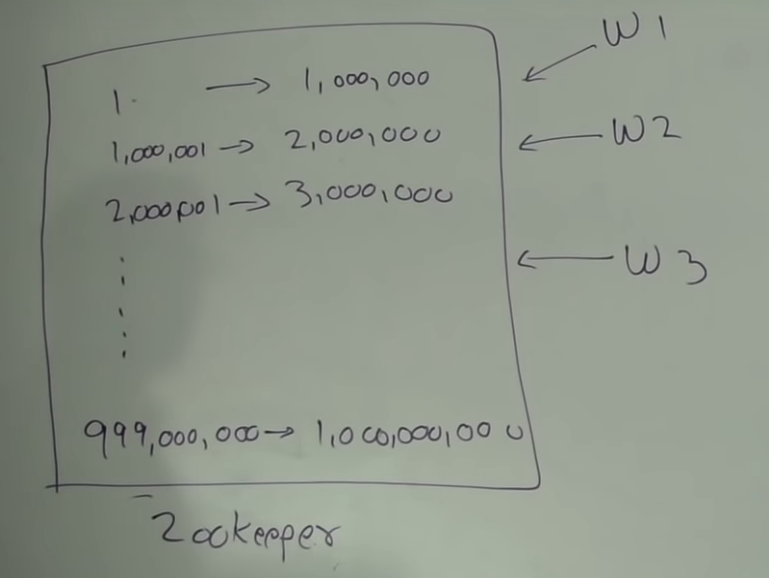 W1
1. → 1,000,000
1,000,001 → 2,000,000 ← W2
2,000,001 → 3,000,000
← W3
999,000,000 → 1,000,000,000
Zookeeper